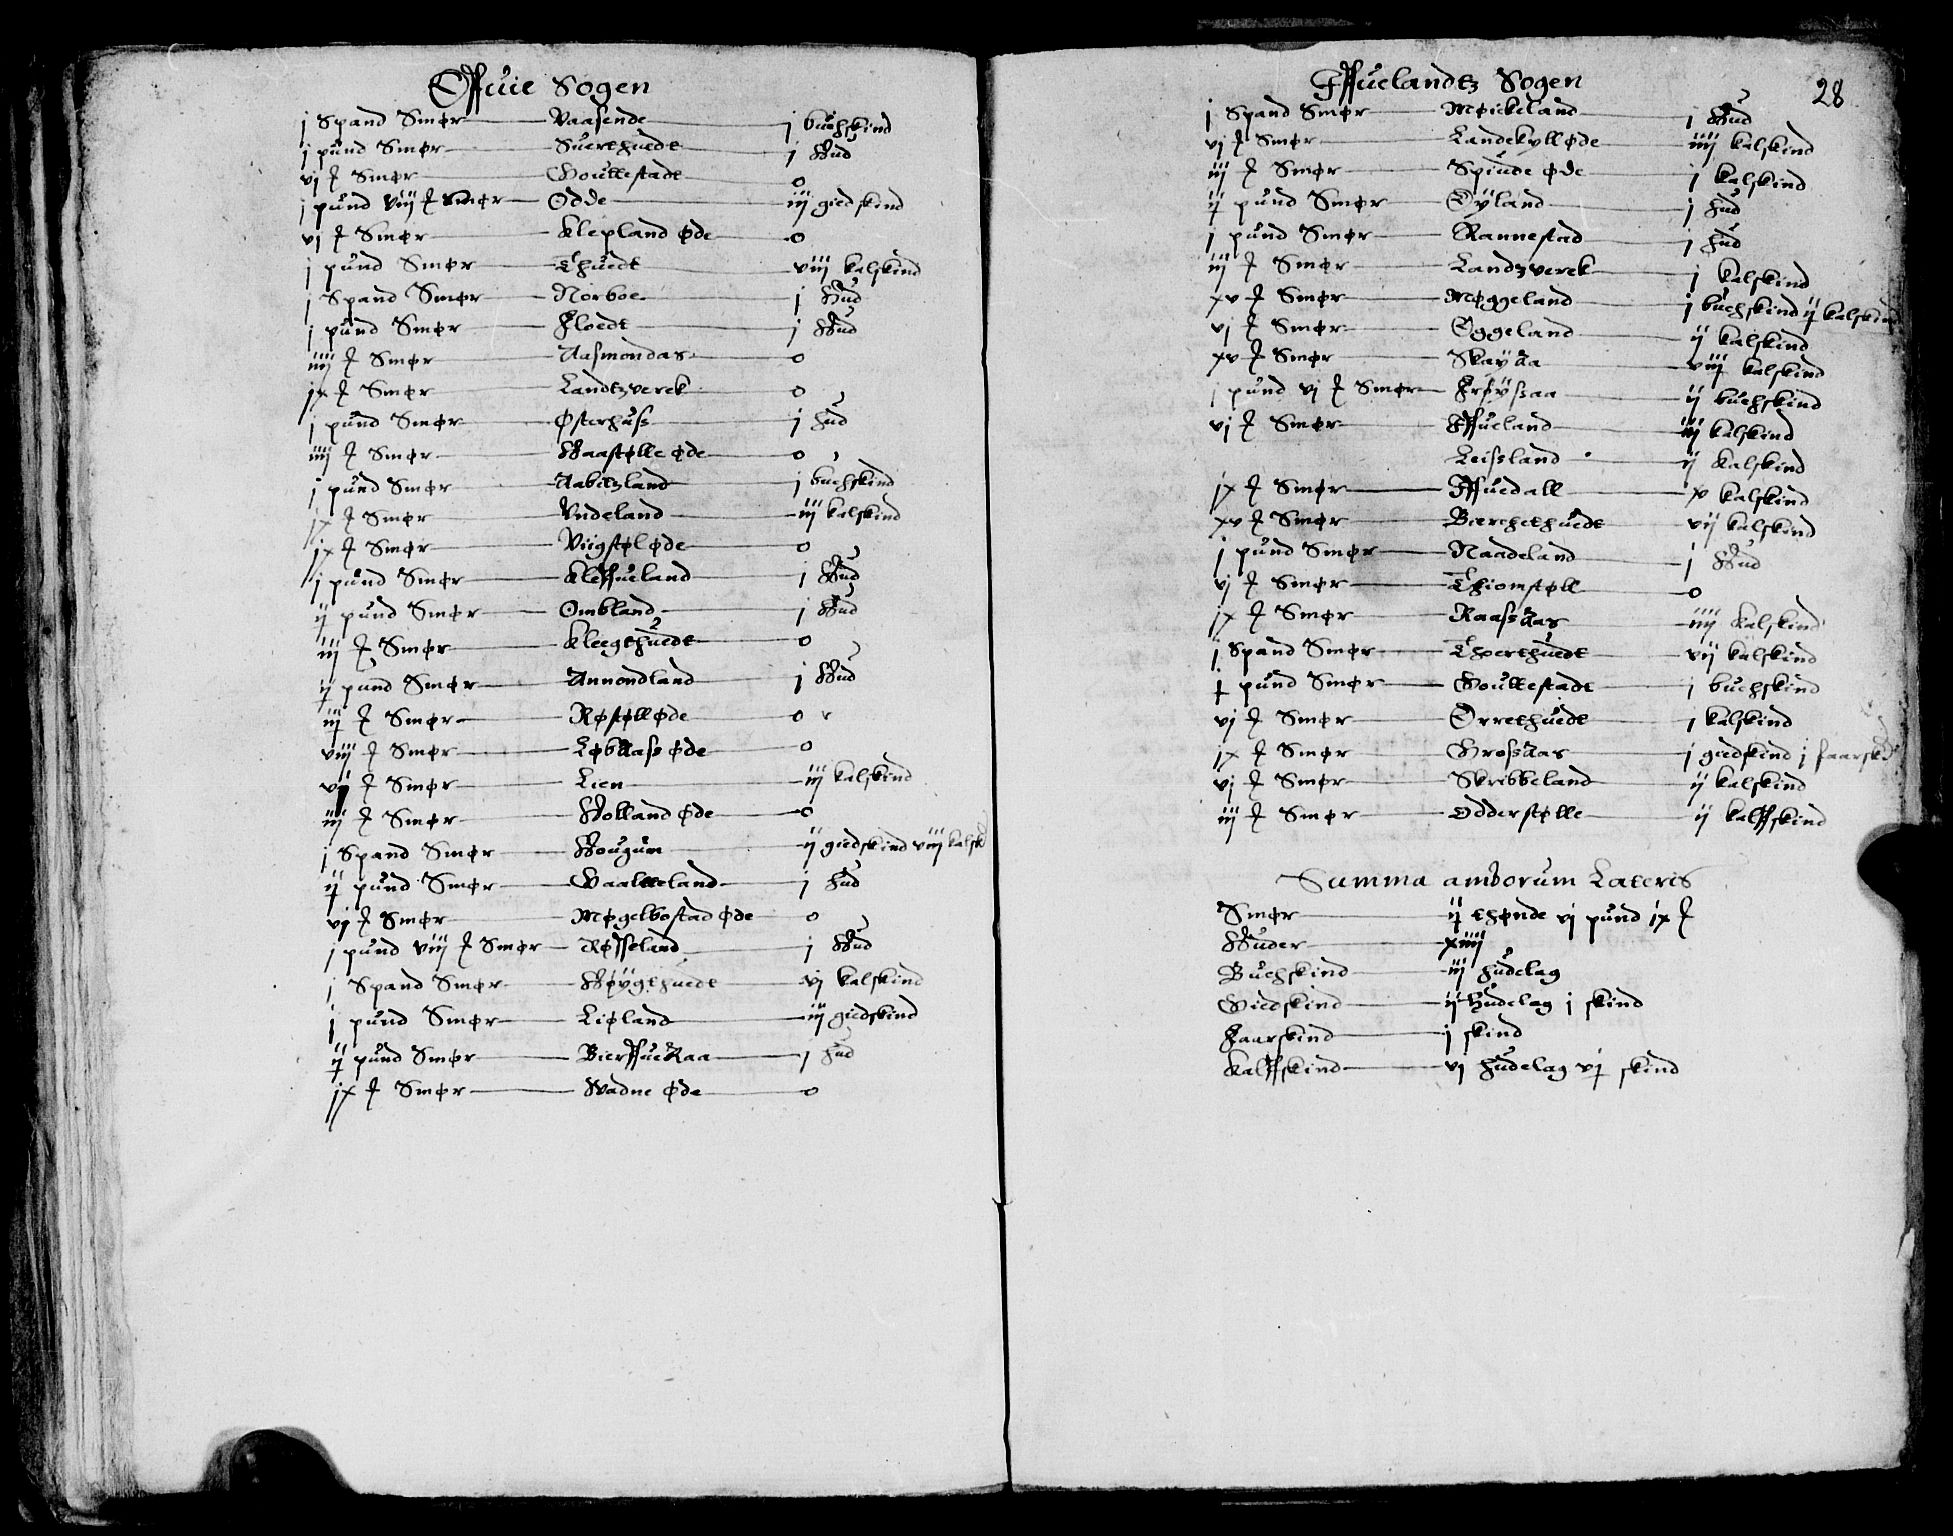 Øffuie Sogen
j Spand Smør Vaasende j buchskind
j pund Smør Suerthuedt j Hud
vj ₰ Smør Goullestadt o
j pund viij ₰ Smør Odde iij giedskind
vj ₰ Smør Klepland øde o
j pund Smør Thuedt viij kalskind
j Spand Smør Norboe j Hud
j pund Smør Floedt j Hud
iiij ₰ Smør Aasmondas o
jx ₰ Smør Landtzverck o
j pund Smør Østerhuss j Hud
iiij ₰ Smør Haastølle øde o
j pund Smør Aabeltzland j buchskind
jx ₰ Smør Vndeland iij kalskind
jx ₰ Smør Viigstøl øde o
j pund Smør Kleffueland j Hud
ij pund Smør Ombland j Hud
iij ₰ Smør Kleegthuedt o
ij pund Smør Annondland j Hud
iij ₰ Smør Røstøll øde o
viij ₰ Smør Løbaass øde o
vij ₰ Smør Lien iij kalskind
iij ₰ Smør Holland øde o
j Spand Smør Hougum ij giedskind viij kalsk
ij pund Smør Gaalleland j Hud
vj ₰ Smør Møgelbostad øde o
j pund viij ₰ Smør Røsseland j Hud
j Spand Smør Høygthuedt vj kalskind
j pund Smør Liøland iij giedskind
ij pund Smør Bierffue Raa j Hud
jx ₰ Smør Vadne øde o
Ffuelandtz Sogen 28
j Spand Smør Møckeland j Hud
vj ₰ Smør Landekyll øde iiij kalskind
iij ₰ Smør Spiude øde j kalskind
ij pund Smør Øyland j Hud
j pund Smør Rannestad j Hud
iij ₰ Smør Landzverck j kalskind
xv ₰ Smør Møggeland j buchskind ij kalskind
vj ₰ Smør Eggeland ij kalskind
xv ₰ Smør Skayaa viij kalskind
j pund vj ₰ Smør Frøyssaa ij buchskind
vj ₰ Smør Ffueland iij kalskind
Leissland ij kalskind
jx ₰ Smør Ffuedall xv kalskind
xv ₰ Smør Bierchethuedt vij kalskind
j pund Smør Naadeland j Hud
vj ₰ Smør Thiomstøll o
jx ₰ Smør Raassaas iiij kalskind
j Spand Smør Thorthuedt vij kalskind
j pund Smør Goullestadt j buchskind
vj ₰ Smør Ørrethuedt j kalskind
jx ₰ Smør Grossaas j giedskind j faarsk
vj ₰ Smør Skribbeland ij kalskind
iij ₰ Smør Odderstølle ij kalffskind
Summa amborum Lateris
Smør ij thønde vj pund jx ₰
Huder xiiij
Buchskind iij Hudelag
Giedskind ij Hudelag j skind
Faarskind j skind
Kalffskind vj Hudelag vj skind